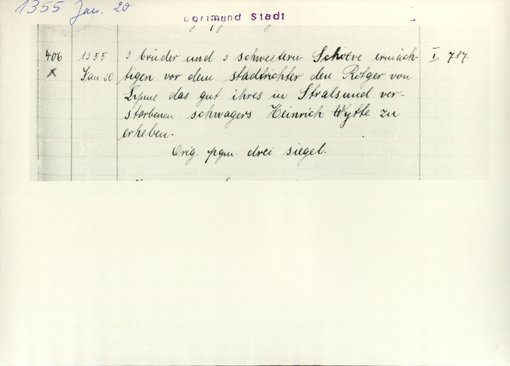 1355 Jan. 20
Dortmund Stadt
406 1355 3 brüder und 3 schwestern Schove ermäch- I 717.
X Jan 20 tigen vor dem stadtrichter den Rotger von
das gut ihres in Stralsund ver-
storbenen schwagers Heinrich Wytte zu
erheben.
Orig. pgm. drei siegel.